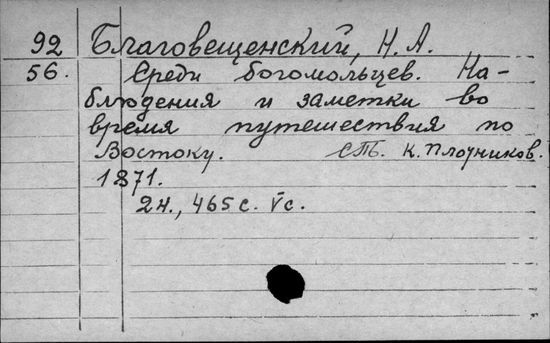 92 Благовещенский, Н. А.
56. Среди богомольцев. На-
блюдения и заметки во
время путешествия по
Востоку. СПБ. К. Плотников.
1871.
2 н., 465 с. Vс.